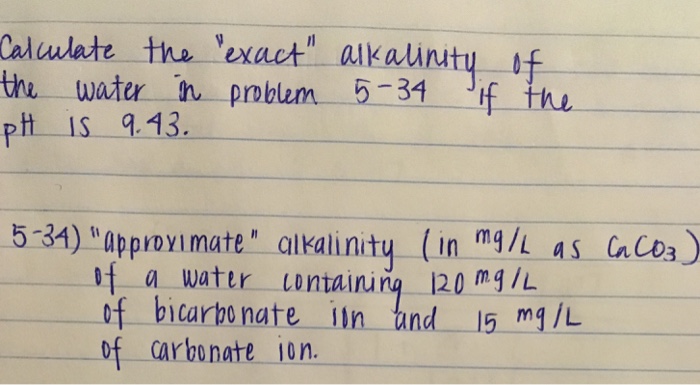 Calculate the "exact" alkalinity of
the water in problem 5-34 if the
pH is 9.43.
5-34) "approximate" alkalinity (in mg/L as CaCO3)
of a water containing 120 mg/L
of bicarbonate ion and 15 mg/L
of carbonate ion.